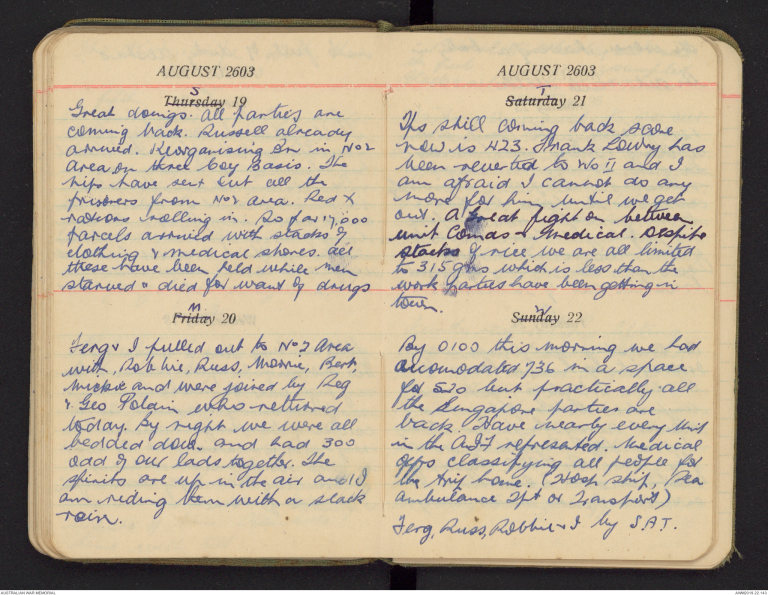 AUGUST 2603
S
Thursday 19
Great doings. All parties are
coming back. Russell already
arrived. Reorganising Bn in No 2
Area on three Coy Basis. The
nips have sent out all the
prisoners from No 1 area. Red X
rations rolling in. So far 17,000
parcels arrived with stacks of
clothing & medical stores. All
these have been held while men
starved & died for want of drugs
M
Friday 20
Ferg & I pulled out to No 2 Area
with, Robbie, Russ, Morrie, Bert,
Mickie and were joined by Reg
& Geo Polain who returned
today. By night we were all
bedded down and had 300
odd of our lads together. The
spirits are up in the air and I
am riding them with a slack
rein.
AUGUST 2603
T
Saturday 21
Tps still coming back score
now is 423. Frank Lowry has
been reverted to Wo II and I
am afraid I cannot do any
more for him until we get
out. A Great fight on between
unit Comds & Medical. Despite
stacks of rice we are all limited
to 315 gms which is less than the
work parties have been getting in
town.
W
Sunday 22
By 0100 this morning we had
accomodated 736 in a space
for 520 but practically all
the Singapore parties are
back. Have nearly every Unit
in the AIF represented. Medical
offrs classifying all people for
the trip home. (Hosp ship, Sea
ambulance Tpt or Transport)
Ferg, Russ, Robbie & I by S.A.T.
AUSTRALIAN WAR MEMORIAL